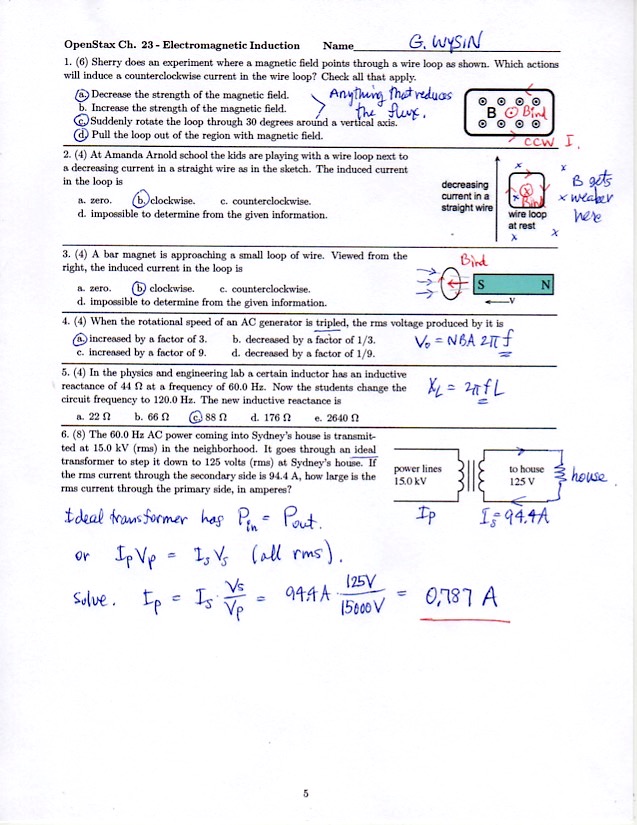 OpenStax Ch. 23 - Electromagnetic Induction Name G. WYSIN
1. (6) Sherry does an experiment where a magnetic field points through a wire loop as shown. Which actions
will induce a counterclockwise current in the wire loop? Check all that apply.
a. Decrease the strength of the magnetic field.
b. Increase the strength of the magnetic field.
c. Suddenly rotate the loop through 30 degrees around a vertical axis.
d. Pull the loop out of the region with magnetic field.
Anything that reduces
the flux.
B Bind
CCW I.
2. (4) At Amanda Arnold school the kids are playing with a wire loop next to
a decreasing current in a straight wire as in the sketch. The induced current
in the loop is
a. zero. b. clockwise. c. counterclockwise.
d. impossible to determine from the given information.
decreasing
current in a
straight wire
x x
x Bind
wire loop
at rest
x x
B gets
x weaker
here
3. (4) A bar magnet is approaching a small loop of wire. Viewed from the
right, the induced current in the loop is
a. zero. b. clockwise. c. counterclockwise.
d. impossible to determine from the given information.
Bind
S N
v
4. (4) When the rotational speed of an AC generator is tripled, the rms voltage produced by it is
a. increased by a factor of 3. b. decreased by a factor of 1/3.
c. increased by a factor of 9. d. decreased by a factor of 1/9.
V₀ = NBA 2π f
5. (4) In the physics and engineering lab a certain inductor has an inductive
reactance of 44 Ω at a frequency of 60.0 Hz. Now the students change the
circuit frequency to 120.0 Hz. The new inductive reactance is
a. 22 Ω b. 66 Ω c. 88 Ω d. 176 Ω e. 2640 Ω
X_L = 2π f L
6. (8) The 60.0 Hz AC power coming into Sydney's house is transmit-
ted at 15.0 kV (rms) in the neighborhood. It goes through an ideal
transformer to step it down to 125 volts (rms) at Sydney's house. If
the rms current through the secondary side is 94.4 A, how large is the
rms current through the primary side, in amperes?
power lines
15.0 kV
to house
125 V
house.
Ip Is = 94.4A
Ideal transformer has Pin = Pout.
or IpVp = IsVs (all rms).
Solve. Ip = Is · Vs/Vp = 94.4A · 125V/15000V = 0.787 A
5